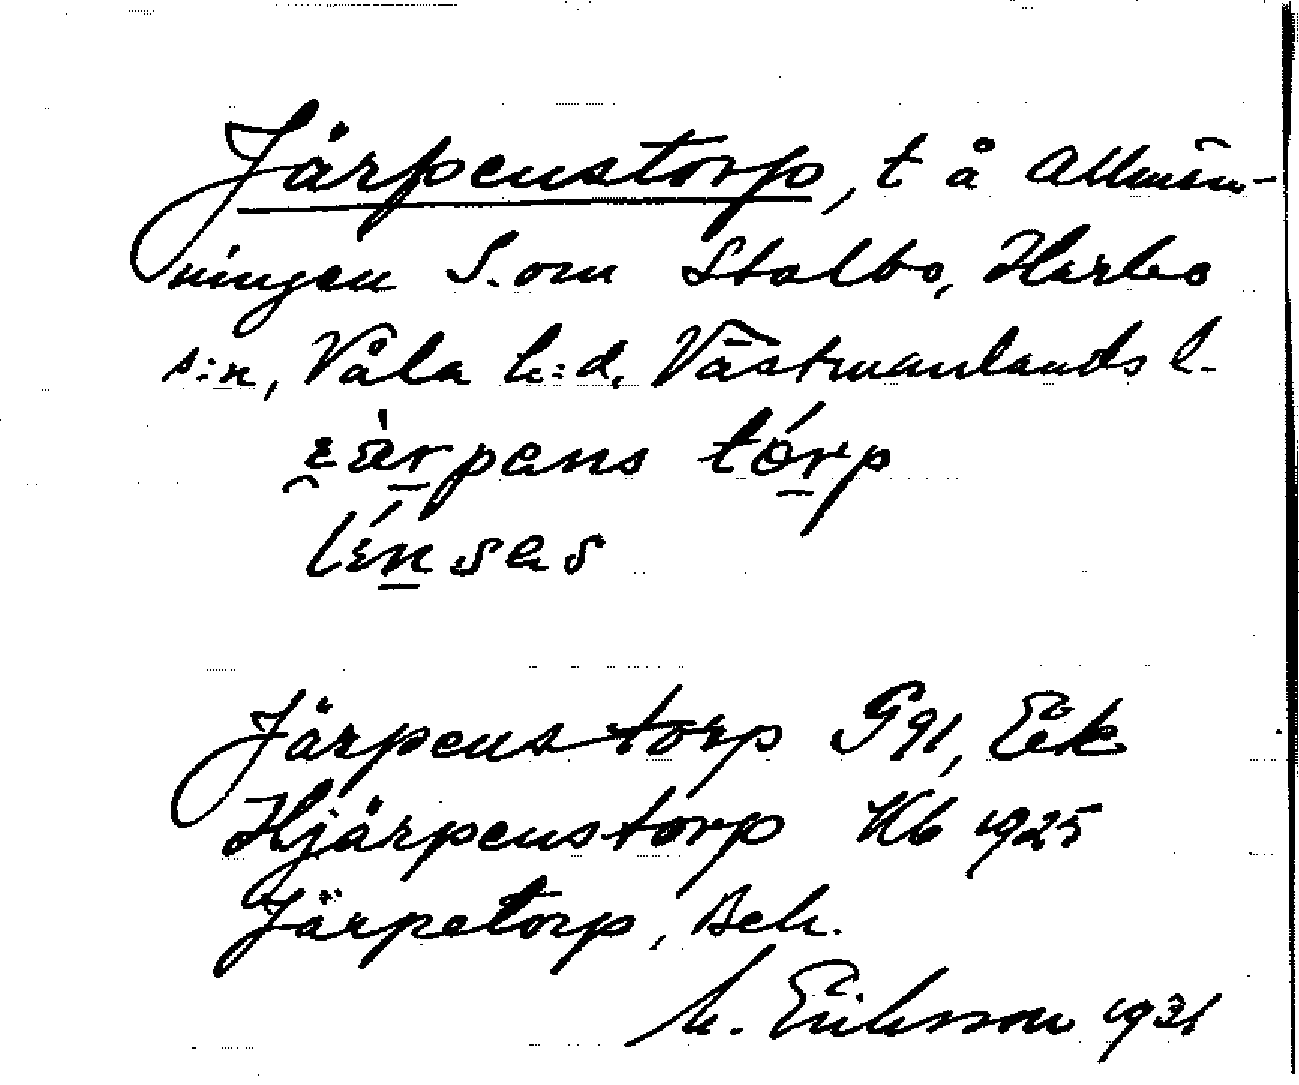 Järpenstorp, t å Allmän-
ningen S. om Stalbo, Harbo
s:n, Våla h:d, Västmanlands l.
i̯àr̲pens tór̲p
lén̲sas
Järpenstorp G91, Eik
Hjärpenstorp Kb 1925
Järpetorp, Bek.
M. Eriksson 1931